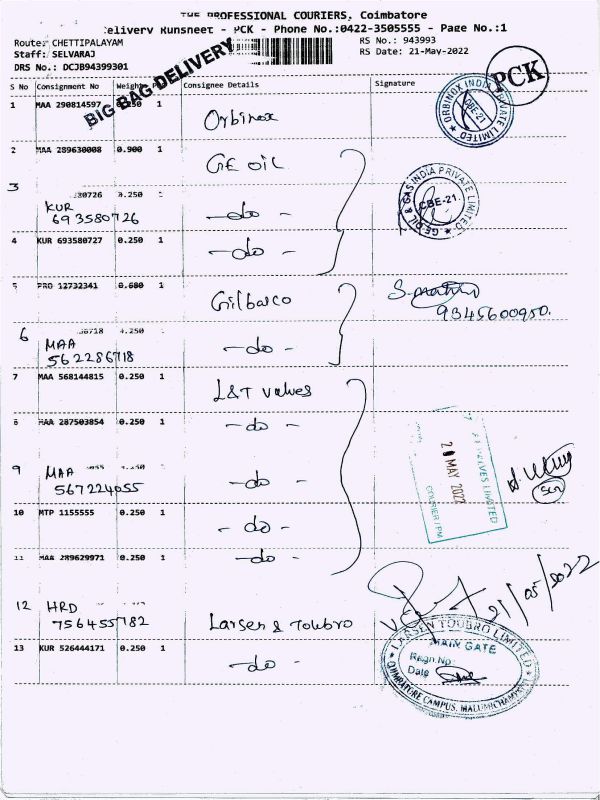 THE PROFESSIONAL COURIERS, Coimbatore
Delivery Runsheet - PCK - Phone No.:0422-3505555 - Page No.:1
Route: CHETTIPALAYAM RS No.: 943993
Staff: SELVARAJ RS Date: 21-May-2022
DRS No.: DCJB94399301
BIG BAG DELIVERY
PCK
S No Consignment No Weight Consignee Details Signature
1 MAA 290814597 0.250 1 Orbinox
ORBINOX INDIA PRIVATE LIMITED
CBE-21
2 MAA 289630008 0.900 1 GE OIL
3 30726 0.250 1
KUR 693580726 -do-
GE OIL & GAS INDIA PRIVATE LIMITED
CBE-21.
4 KUR 693580727 0.250 1 -do-
5 PRO 12732341 0.680 1 Gilbarco
9345600950.
6 86718 0.250 1
MAA 562286718 -do-
7 MAA 568144815 0.250 1 L&T valves
8 MAA 287503854 0.250 1 -do-
9 MAA 567224055 1 -do-
VALVES LIMITED
21 MAY 2022
COURIER / PM
10 MTP 1155555 0.250 1 -do-
11 MAA 289629971 0.250 1 -do-
21/05/2022
12 HRD 756455782 Larsen & Toubro
13 KUR 526444171 0.250 1 -do-
LARSEN TOUBRO LIMITED
MAIN GATE
Regn.No:
Date
COIMBATORE CAMPUS,